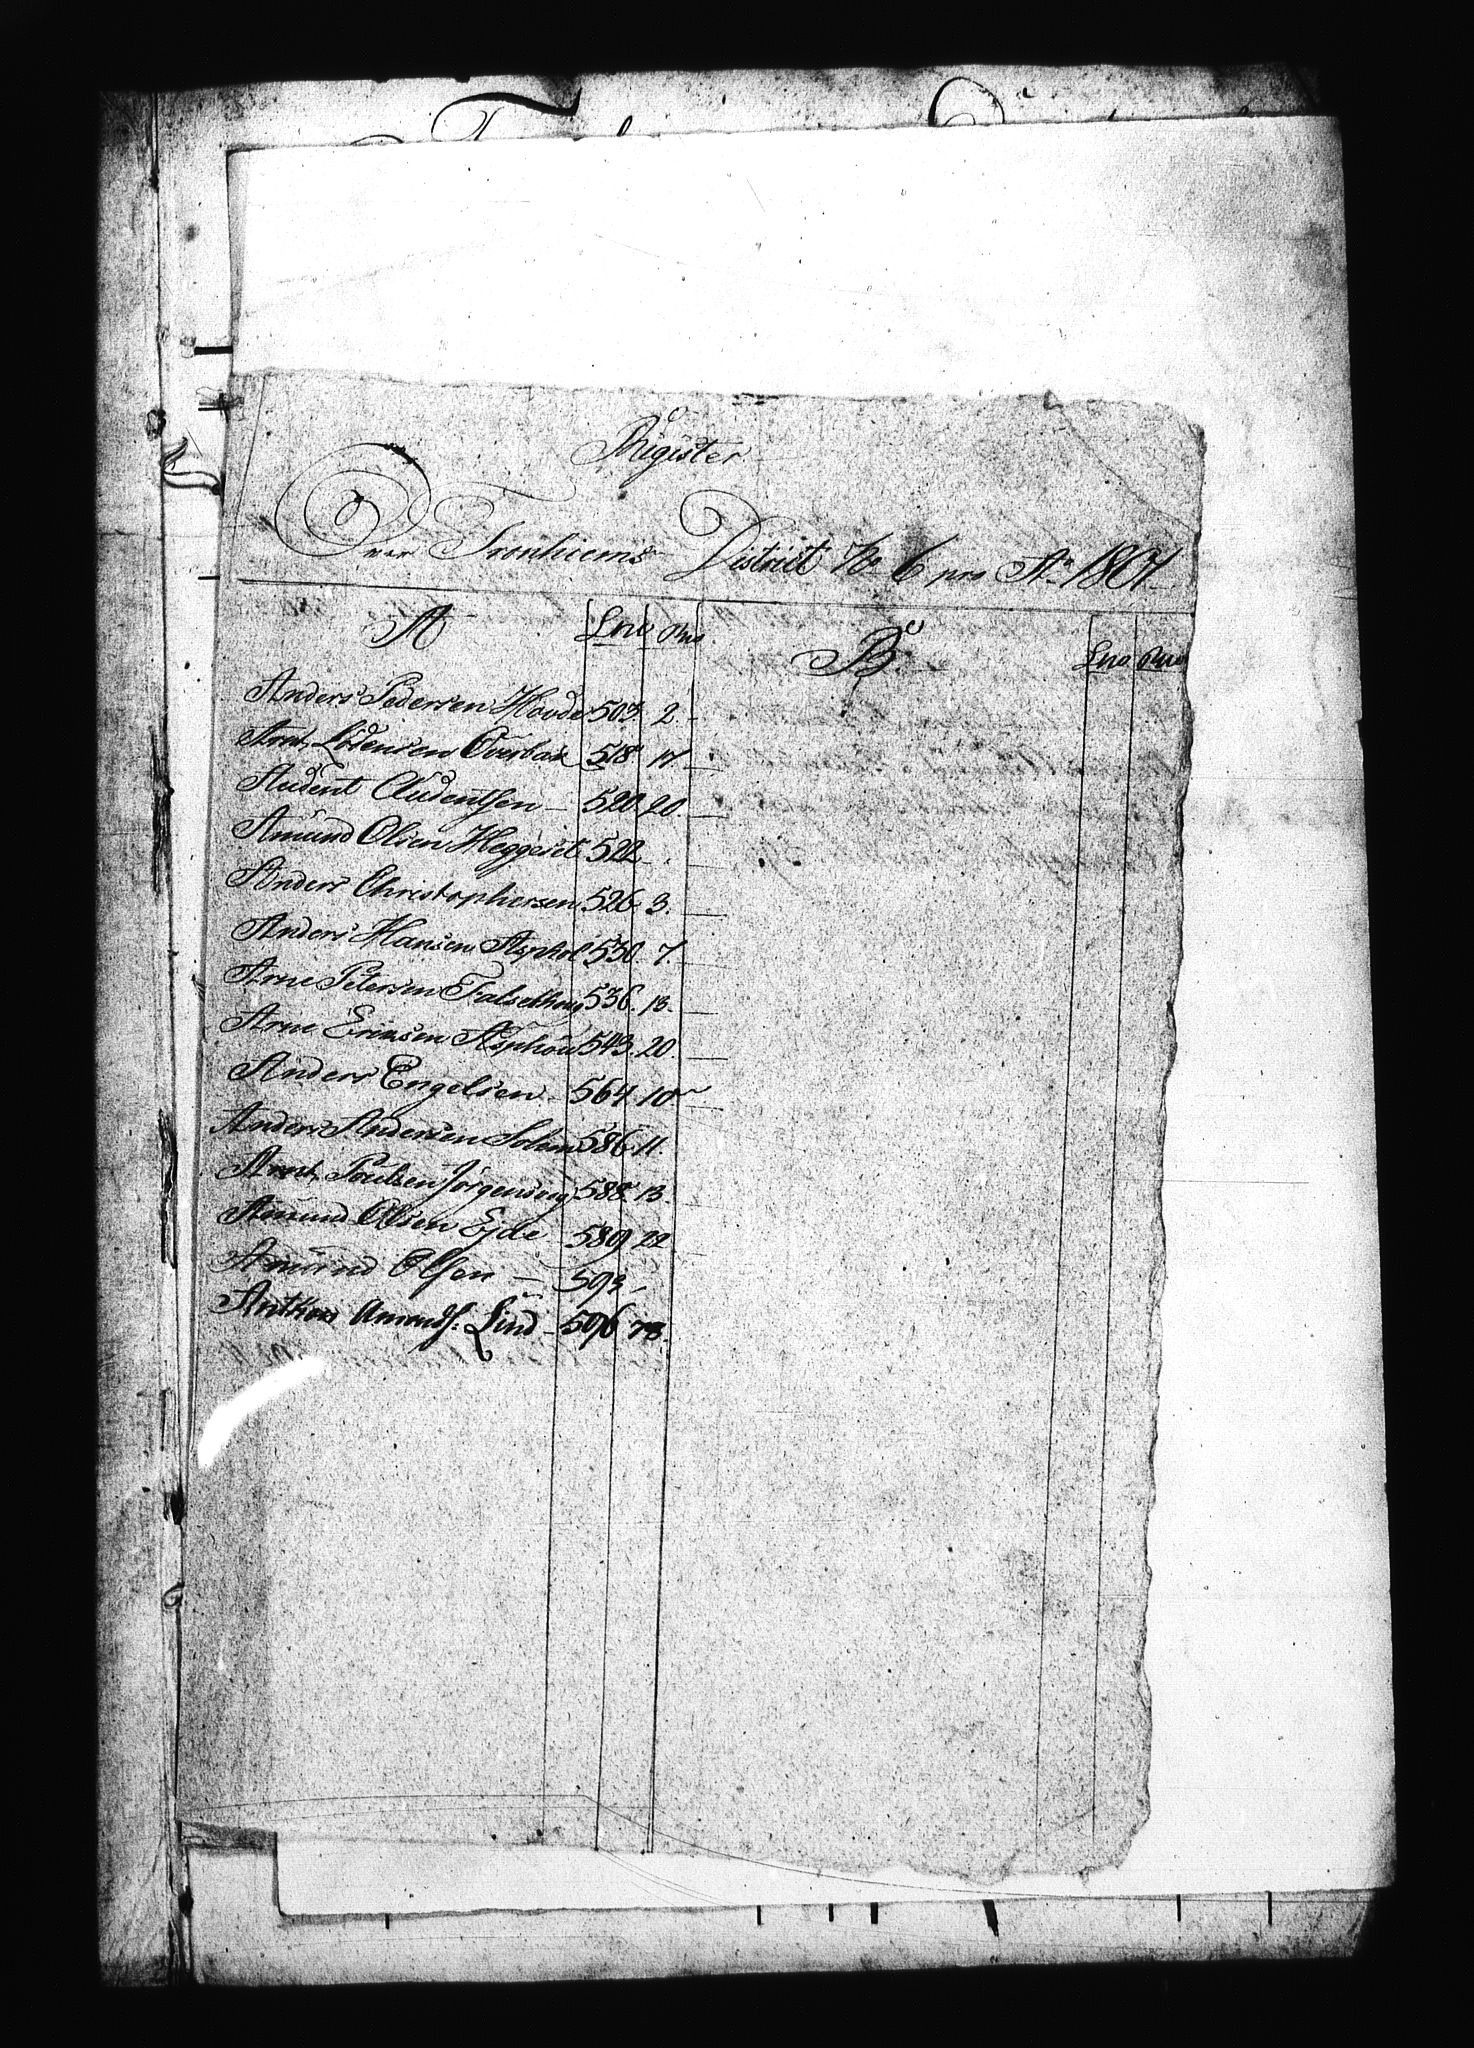 Rigister
Over Tronhiems District No 6 pro Ao 1807.
A Lno Pno. B. Lno Pno
Anders Pedersen Hovde 503. 2.
Arnt Lodensen Overbak 518 17
Audent Audentsen — 520. 20.
Amund Olsen Heggeset 522 —
Anders Christophersen 526. 3.
Anders Hansen Asphol 530. 7.
Arne Petersen Falsethoug 536. 13.
Arne Ericksen Asphou 543. 20.
Anders Engelsen — 564. 10
Anders Andersen Solem 586. 11.
Arnt Poulsen Jørgensvog 588. 13.
Amund Olsen Ejde 589 22
Amund Olsen — 593 —
Anthon Amonds: Lind — 596 73.